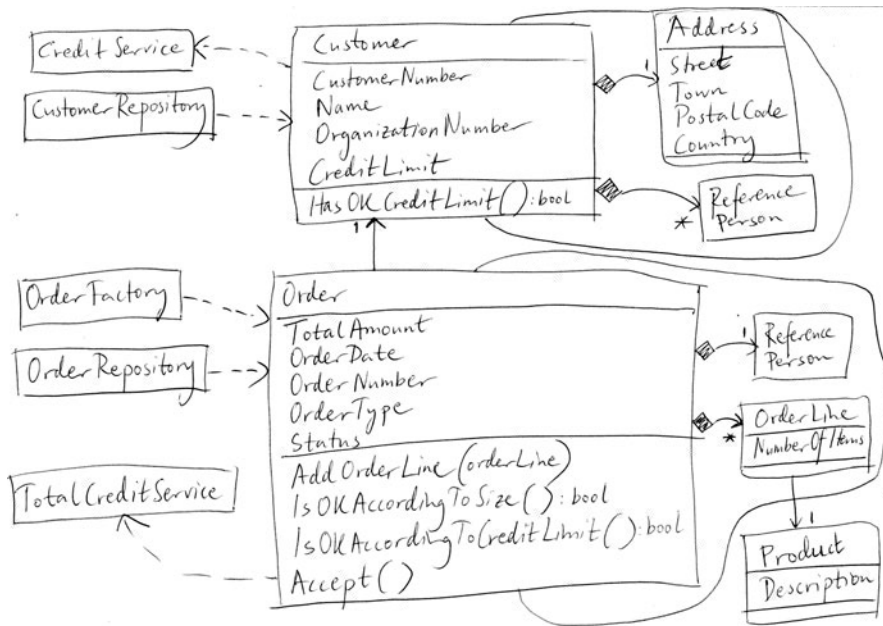 Credit Service
CustomerRepository
Customer
CustomerNumber
Name
OrganizationNumber
CreditLimit
HasOKCreditLimit():bool
1
Address
Street
Town
PostalCode
Country
1
Reference
Person
*
OrderFactory
OrderRepository
TotalCreditService
Order
TotalAmount
OrderDate
OrderNumber
OrderType
Status
AddOrderLine(orderLine)
IsOKAccordingToSize():bool
IsOKAccordingToCreditLimit():bool
Accept()
1
Reference
Person
*
OrderLine
NumberOfItems
1
Product
Description